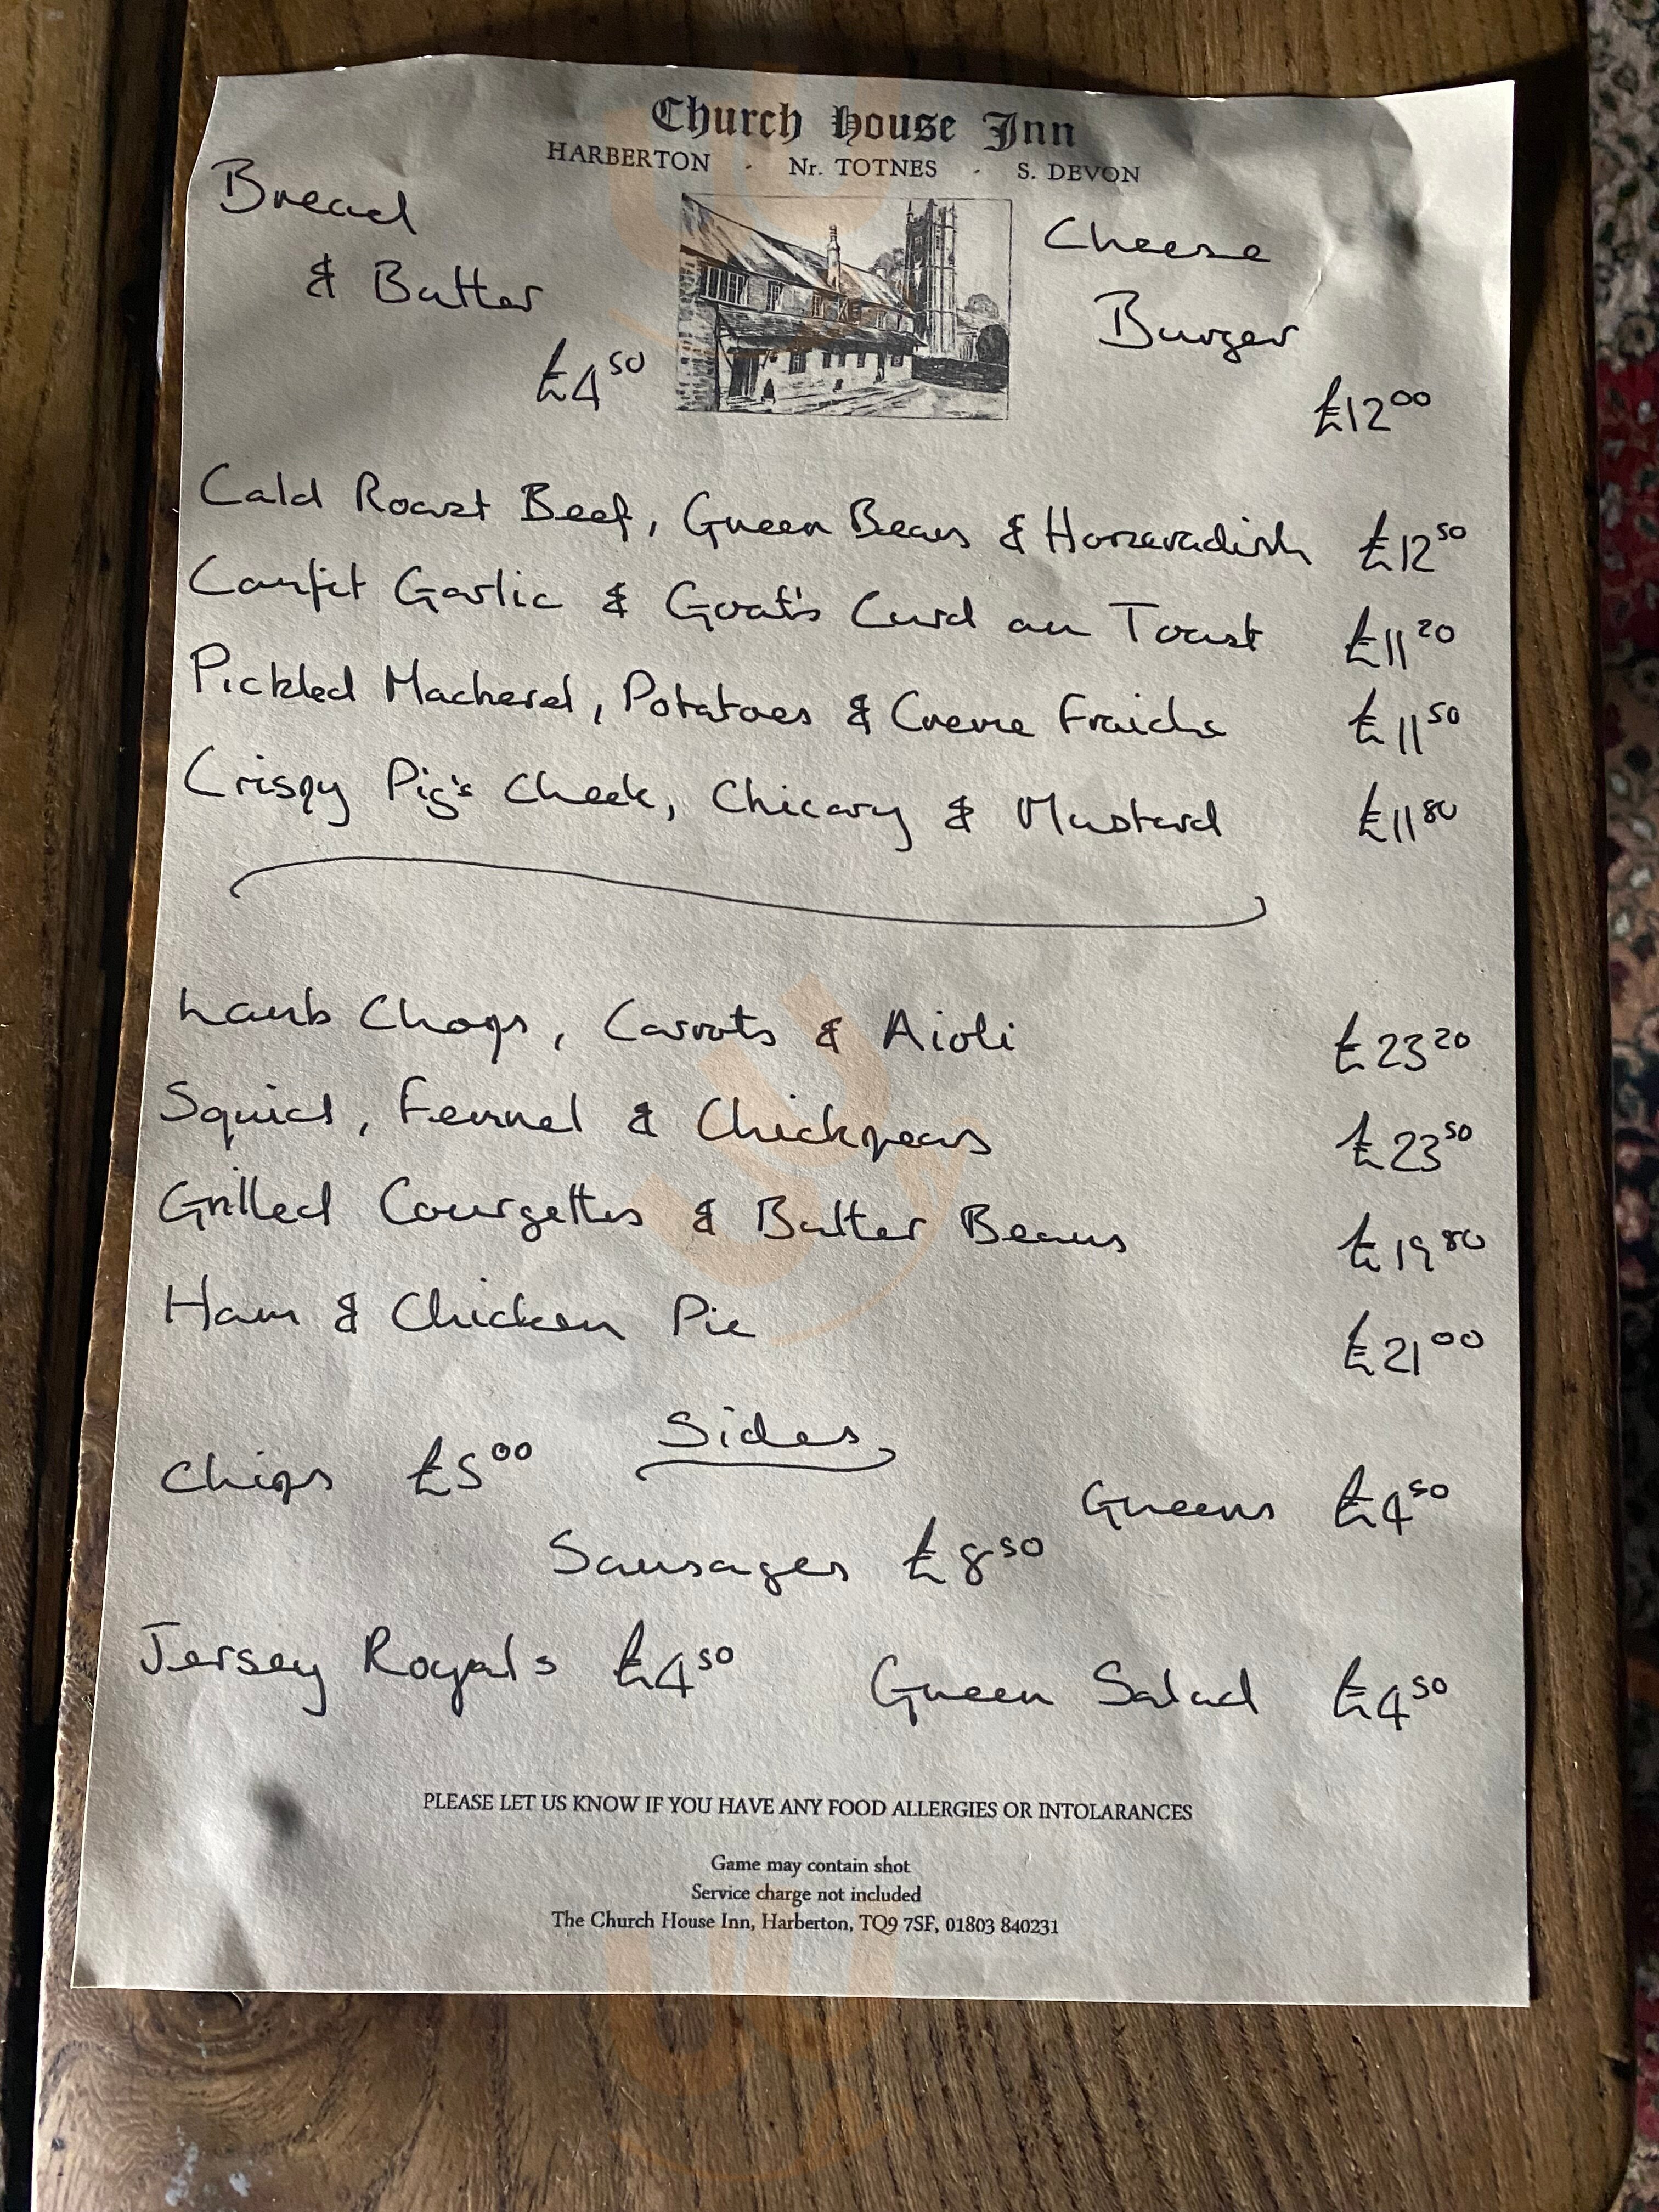 Church House Inn
HARBERTON - Nr. TOTNES - S. DEVON
Bread
& Butter
£4.50
Cheese
Burger
£12.00
Cold Roast Beef, Green Beans & Horseradish £12.50
Confit Garlic & Goat's Curd on Toast £11.20
Pickled Mackerel, Potatoes & Creme Fraiche £11.50
Crispy Pig's Cheek, Chicory & Mustard £11.80
Lamb Chops, Carrots & Aioli £23.20
Squid, Fennel & Chickpeas £23.50
Grilled Courgettes & Butter Beans £19.80
Ham & Chicken Pie £21.00
Sides
Chips £5.00
Greens £4.50
Sausages £8.50
Jersey Royals £4.50 Green Salad £4.50
PLEASE LET US KNOW IF YOU HAVE ANY FOOD ALLERGIES OR INTOLARANCES
Game may contain shot
Service charge not included
The Church House Inn, Harberton, TQ9 7SF, 01803 840231